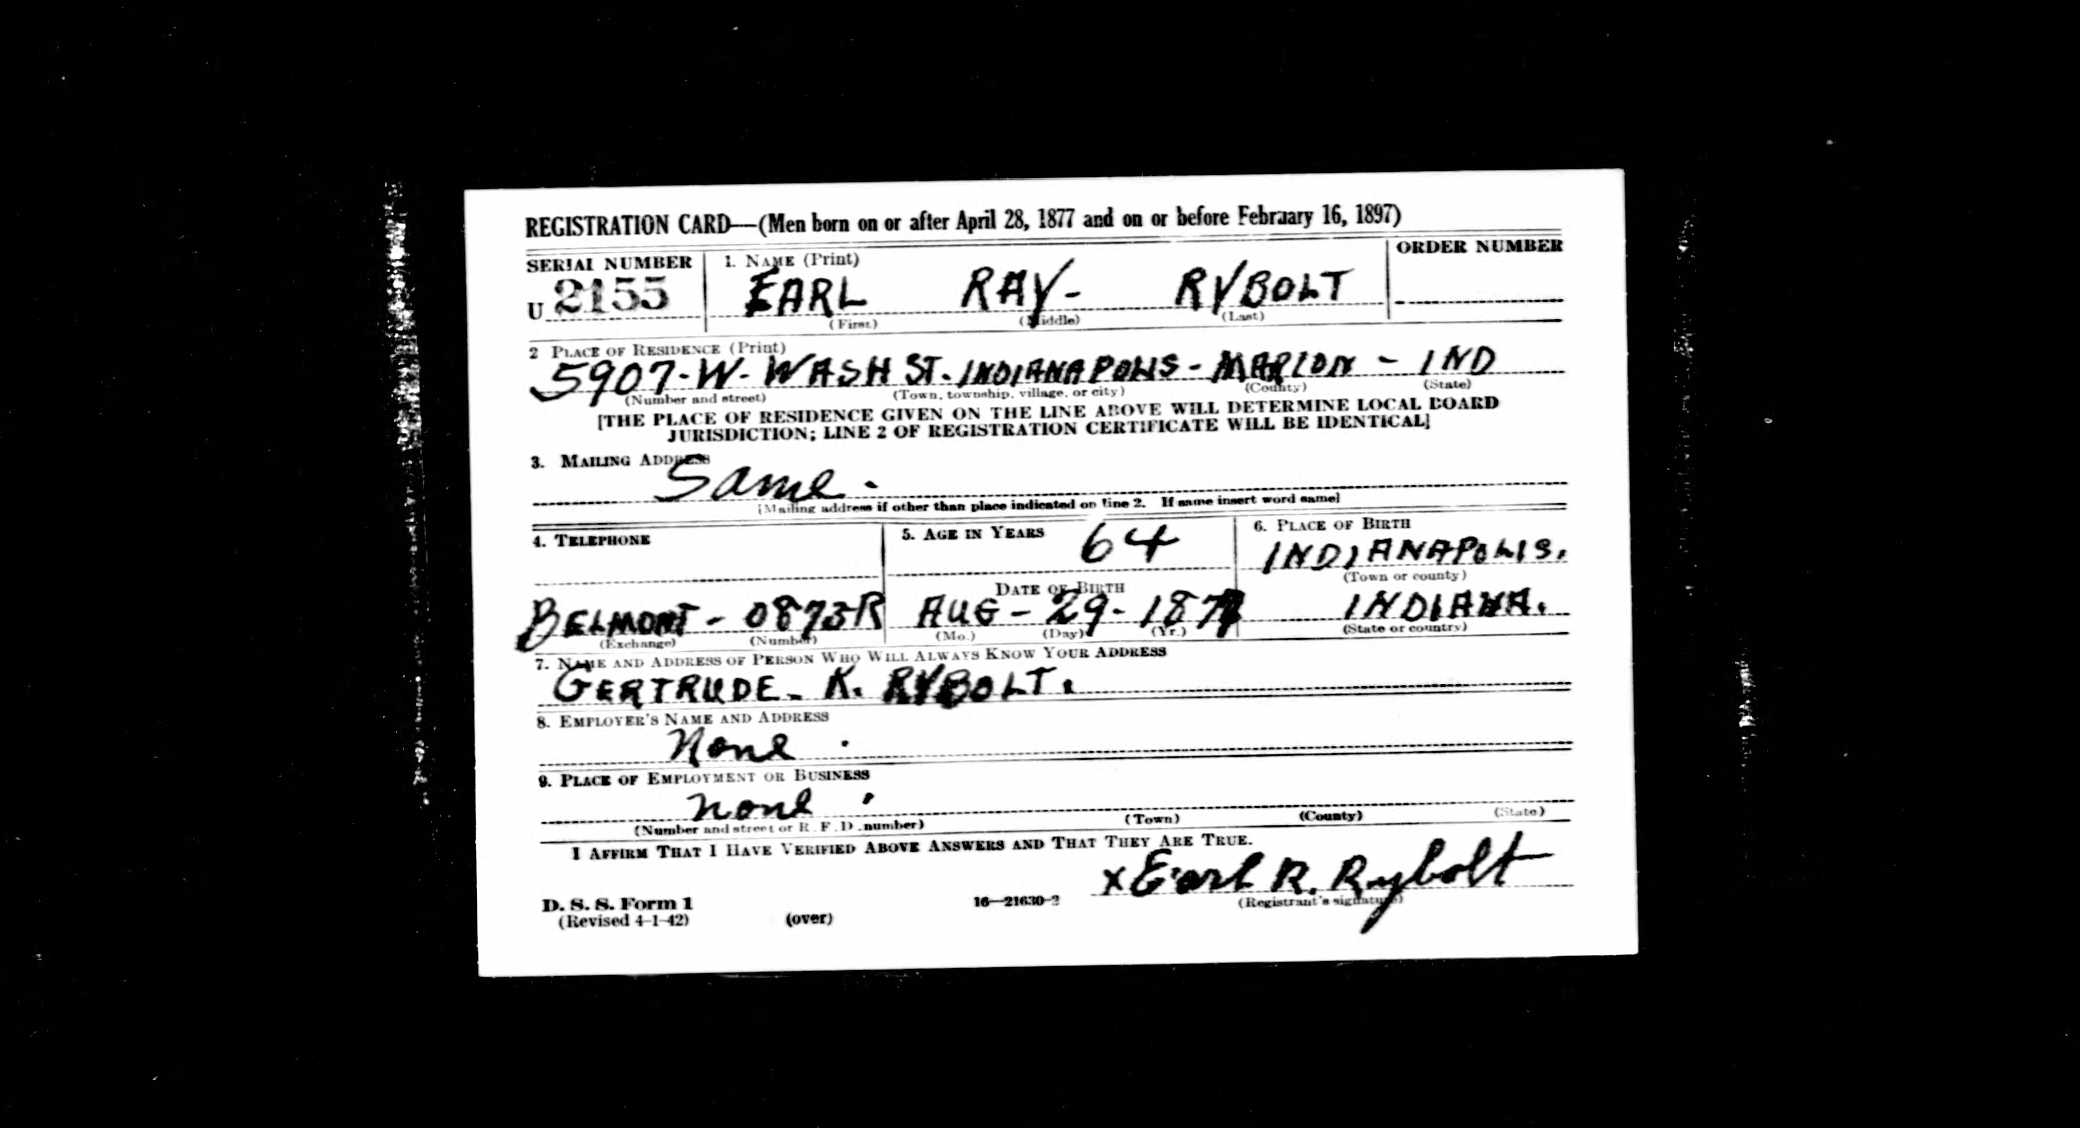 REGISTRATION CARD—(Men born on or after April 28, 1877 and on or before February 16, 1897)
SERIAL NUMBER 1. NAME (Print) ORDER NUMBER
U 2155 EARL RAY- RYBOLT
(First) (Middle) (Last)
2 PLACE OF RESIDENCE (Print)
5907-W- WASH ST. INDIANAPOLIS - MARION - IND
(Number and street) (Town, township, village, or city) (County) (State)
[THE PLACE OF RESIDENCE GIVEN ON THE LINE ABOVE WILL DETERMINE LOCAL BOARD
JURISDICTION; LINE 2 OF REGISTRATION CERTIFICATE WILL BE IDENTICAL]
3. MAILING ADDRESS
Same.
[Mailing address if other than place indicated on line 2. If same insert word same]
4. TELEPHONE 5. AGE IN YEARS 64 6. PLACE OF BIRTH
INDIANAPOLIS.
(Town or county)
DATE OF BIRTH
BELMONT - 0873R AUG - 29 - 1877 INDIANA.
(Exchange) (Number) (Mo.) (Day) (Yr.) (State or country)
7. NAME AND ADDRESS OF PERSON WHO WILL ALWAYS KNOW YOUR ADDRESS
GERTRUDE - K. RYBOLT.
8. EMPLOYER'S NAME AND ADDRESS
None .
9. PLACE OF EMPLOYMENT OR BUSINESS
none .
(Number and street or R. F. D. number) (Town) (County) (State)
I AFFIRM THAT I HAVE VERIFIED ABOVE ANSWERS AND THAT THEY ARE TRUE.
x Earl R. Rybolt
D. S. S. Form 1 16—21630-2 (Registrant's signature)
(Revised 4-1-42) (over)